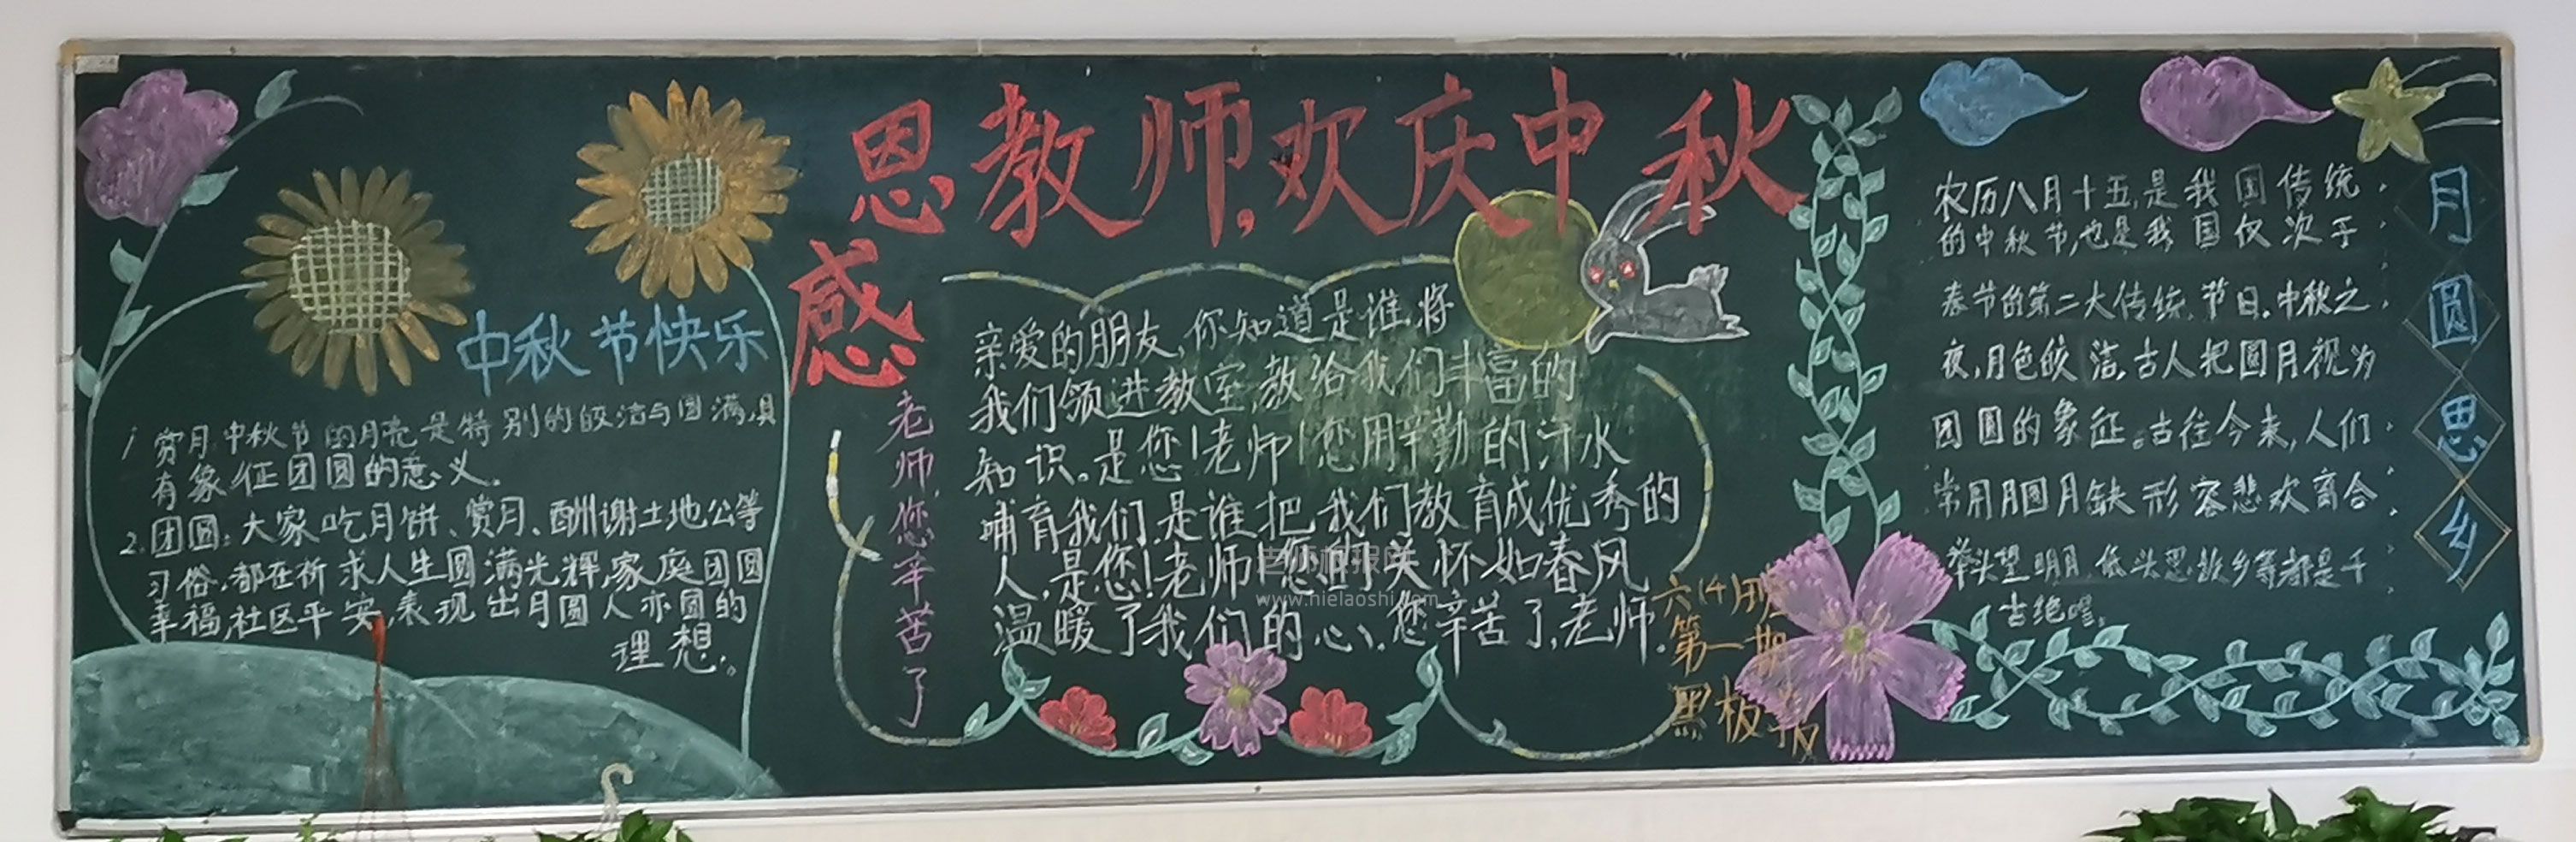 感恩教师,欢庆中秋
中秋节快乐
1 赏月,中秋节的月亮是特别的皎洁与圆满,具
有象征团圆的意义。
2.团圆:大家吃月饼、赏月、酬谢土地公等
习俗,都在祈求人生圆满光辉,家庭团圆
幸福,社区平安,表现出月圆人亦圆的
理想。
老师,您辛苦了
亲爱的朋友,你知道是谁,将
我们领进教室,教给我们丰富的
知识。是您!老师!您用辛勤的汗水
哺育我们.是谁把我们教育成优秀的
人,是您!老师!您的关怀如春风
温暖了我们的心、您辛苦了,老师.
六(4)班
第一期
黑板报
农历八月十五,是我国传统
的中秋节,也是我国仅次于
春节的第二大传统节日.中秋之
夜,月色皎洁,古人把圆月视为
团圆的象征。古往今来,人们
常用月圆月缺形容悲欢离合
举头望明月,低头思故乡等都是千
古绝唱。
月圆思乡
老师板报网
www.nielaoshi.com